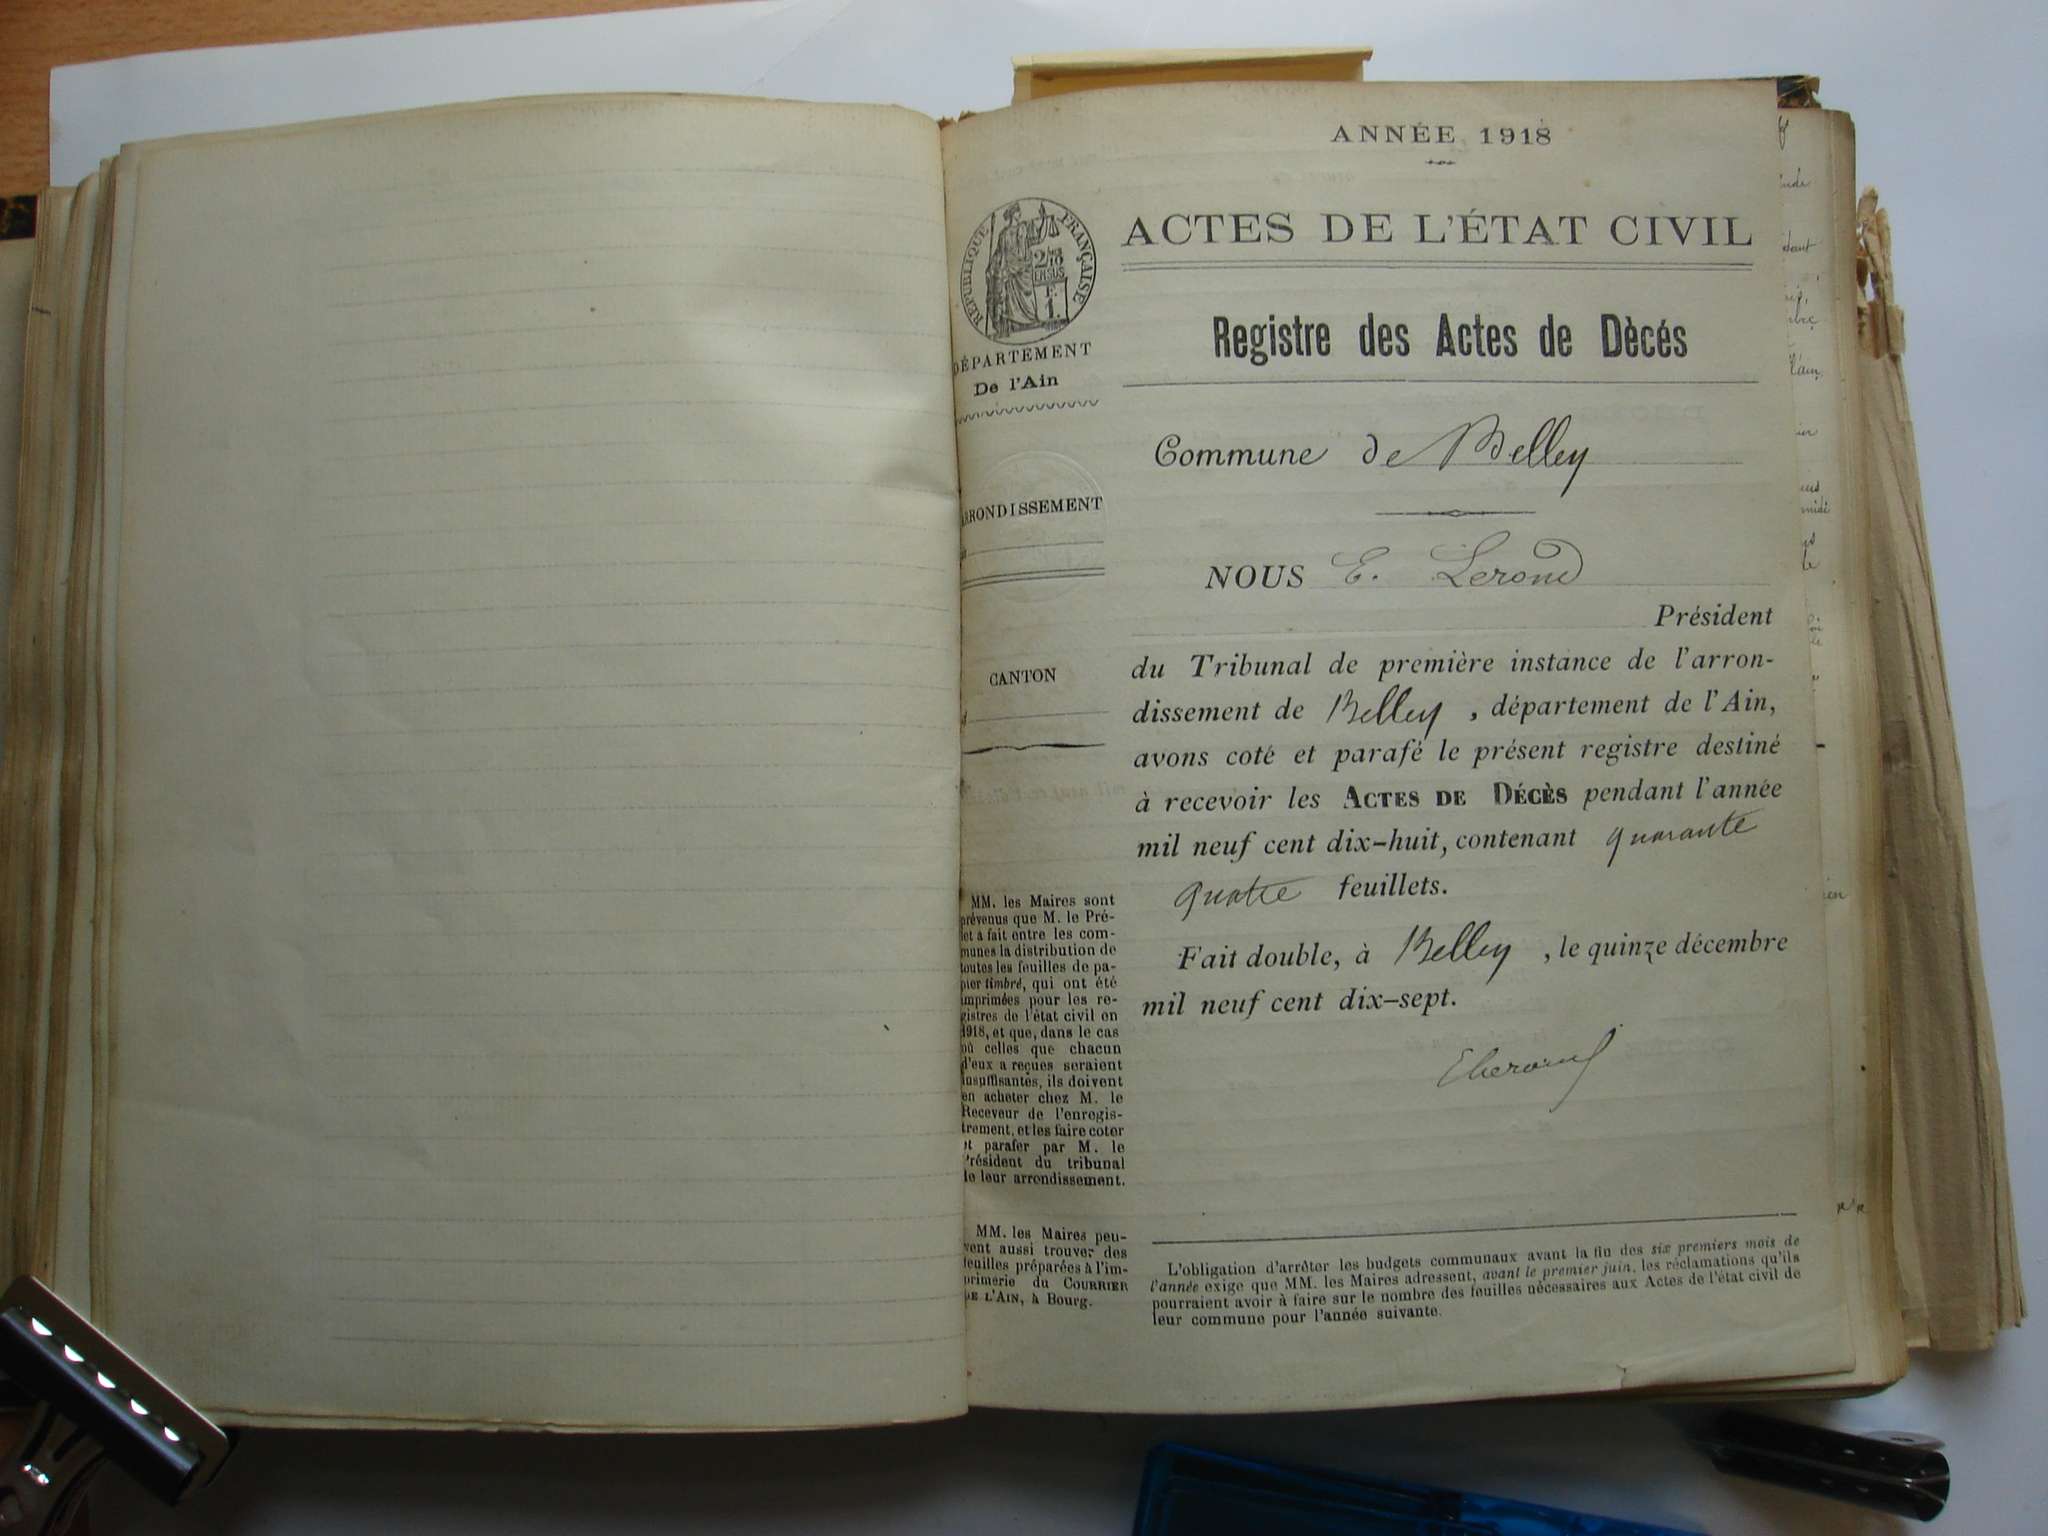 ANNÉE 1918
ACTES DE L'ÉTAT CIVIL
Registre des Actes de Dècés
Commune de Belley
NOUS E. Lerond
Président
du Tribunal de première instance de l'arron-
dissement de Belley, département de l'Ain,
avons coté et parafé le présent registre destiné
à recevoir les ACTES DE DÉCÈS pendant l'année
mil neuf cent dix-huit, contenant quarante
quatre feuillets.
Fait double, à Belley, le quinze décembre
mil neuf cent dix-sept.
L'obligation d'arrêter les budgets communaux avant la fin des six premiers mois de
l'année exige que MM. les Maires adressent, avant le premier juin, les réclamations qu'ils
pourraient avoir à faire sur le nombre des feuilles nécessaires aux Actes de l'état civil de
leur commune pour l'année suivante.
RÉPUBLIQUE FRANÇAISE
DÉPARTEMENT
De l'Ain
ARRONDISSEMENT
CANTON
MM. les Maires sont
prévenus que M. le Pré-
et à fait entre les com-
munes la distribution de
toutes les feuilles de pa-
pier timbré, qui ont été
imprimées pour les re-
gistres de l'état civil en
1918, et que, dans le cas
où celles que chacun
d'eux a reçues seraient
insuffisantes, ils doivent
en acheter chez M. le
Receveur de l'enregis-
trement, et les faire coter
et parafer par M. le
Président du tribunal
de leur arrondissement.
MM. les Maires peu-
vent aussi trouver des
feuilles préparées à l'im-
primerie du COURRIER
DE L'AIN, à Bourg.